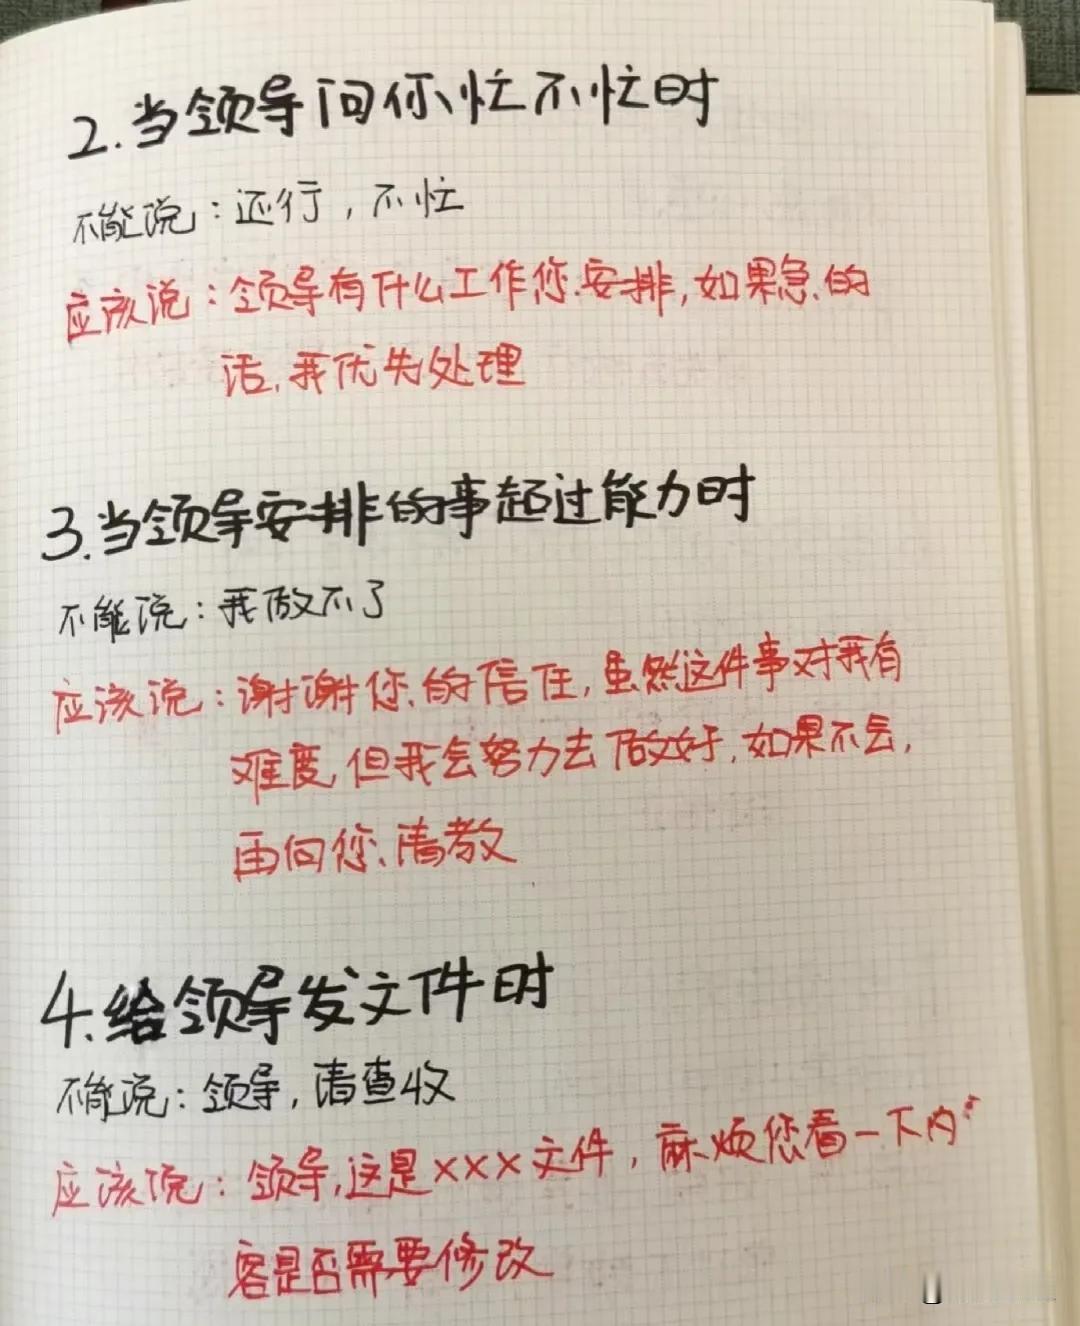 2.当领导问你忙不忙时
不能说：还行，不忙
应该说：领导有什么工作您安排，如果急的
话，我优先处理
3.当领导安排的事超过能力时
不能说：我做不了
应该说：谢谢您的信任，虽然这件事对我有
难度，但我会努力去做好，如果不会，
再向您请教
4.给领导发文件时
不能说：领导，请查收
应该说：领导，这是×××文件，麻烦您看一下内
容是否需要修改